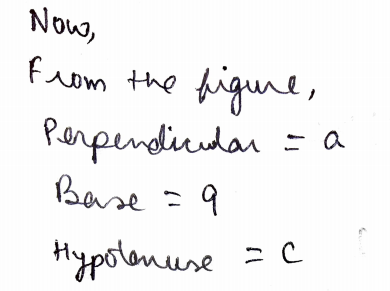 Now,
From the figure,
Perpendicular = a
Base = 9
Hypotenuse = c